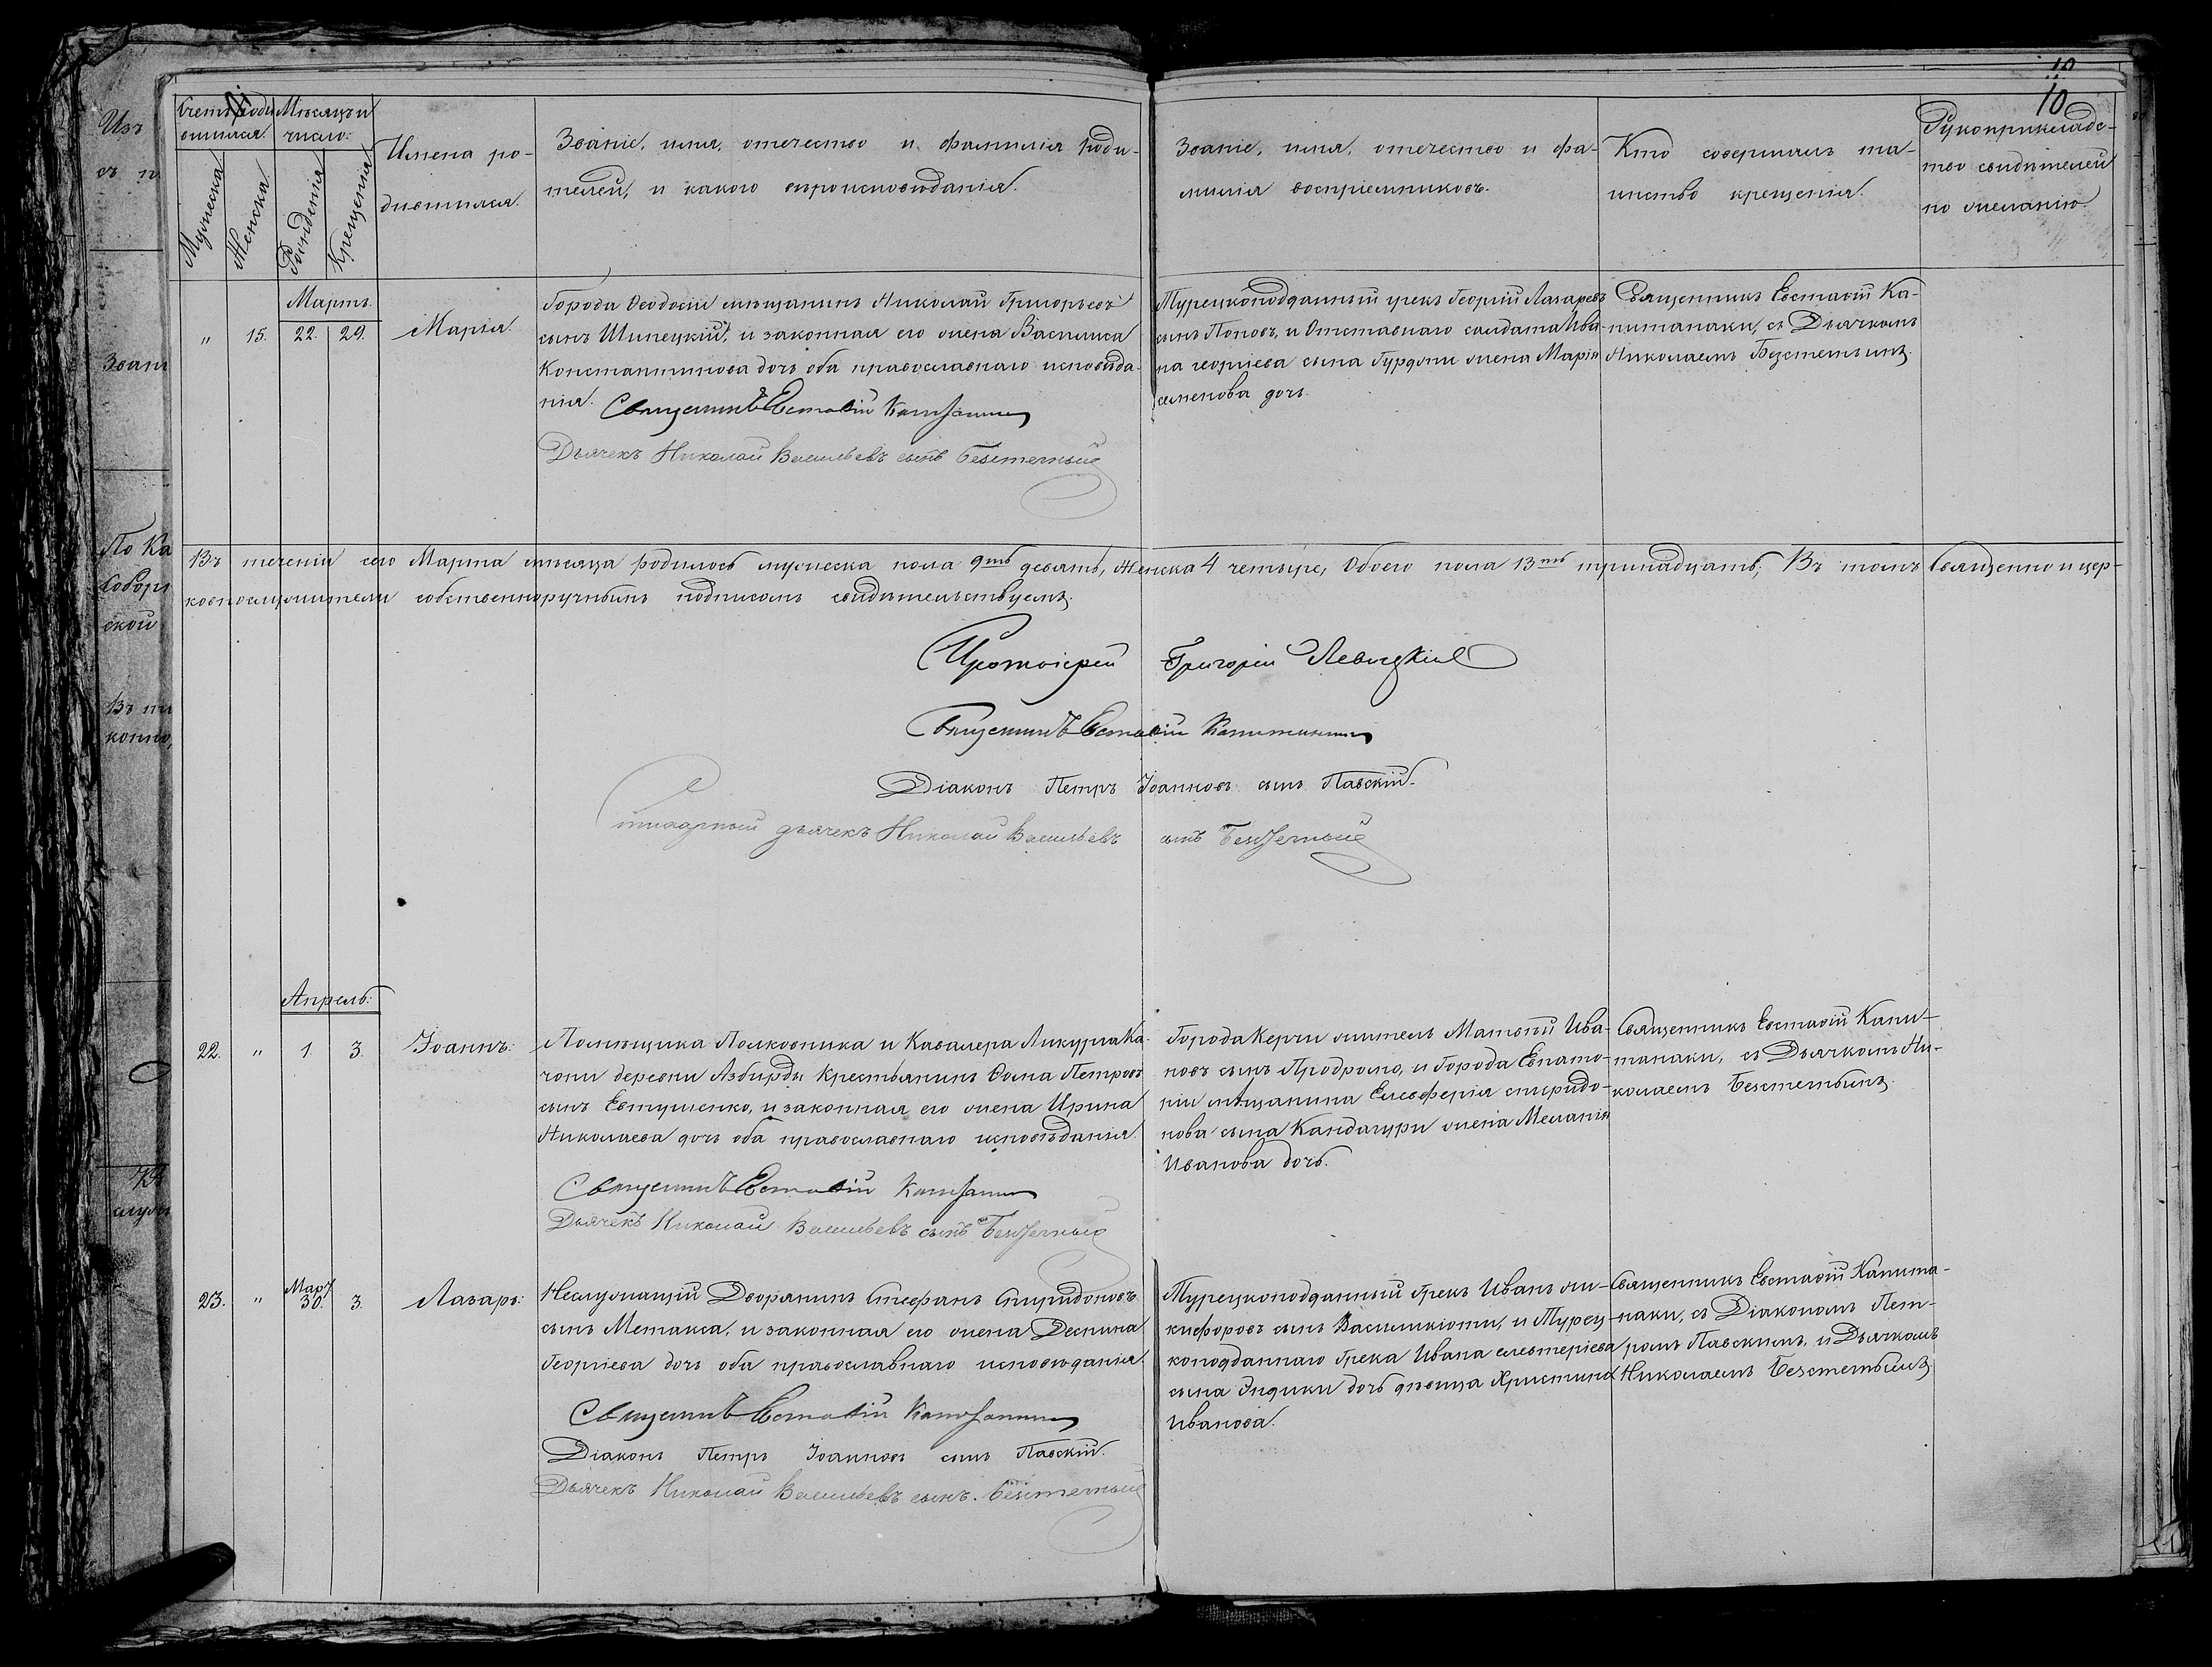 10
10
Счетъ роди-
вшихся.
Мѣсяцъ и
число:
Мужеска
Женска
Рожденія
Крещенія
Имена ро-
дившихся.
Званіе, имя, отечество и фамилія роди-
телей, и какого вѣроисповѣданія.
Званіе, имя, отечество и фа-
милія воспріемниковъ.
Кто совершалъ та-
инство крещенія.
Рукоприкладс-
тво свидѣтелей
по желанію.
Мартъ
" 15. 22. 29. Марія.
Города Ѳеодосіи мѣщанинъ Николай Григорьевъ
сынъ Шипецкій, и законная его жена Василиса
Константинова дочь оба православнаго исповѣда-
нія.
Священникъ Евстафій Капитанаки
Дьячекъ Николай Васильевъ сынъ Безстемный
Турецкоподданный грекъ Георгій Лазаревъ
сынъ Поповъ, и Отставнаго солдата Ива-
на георгіева сына Гурджи жена Марія
семенова дочь.
Священникъ Евстафій Ка-
питанаки, съ Дьячкомъ
Николаемъ Безстемнымъ.
Въ теченіи сего Марта мѣсяца родилось мужеска пола 9ть девять, Женска 4 четыре, Обоего пола 13ть тринадцать, Въ томъ Священно и цер-
ковнослужители собственноручнымъ подписомъ свидѣтельствуемъ.
Протоіерей Григорій Левицкій
Священникъ Евстафій Капитанаки
Діаконъ Петръ Іоанновъ сынъ Павскій.
дьячекъ Николай Васильевъ сынъ Безстемный
Апрель:
22. " 1. 3. Іоаннъ:
Помѣщика Полковника и Кавалера Ликурга Ка-
чони деревни Азбирды крестьянинъ Ѳома Петровъ
сынъ Евтушенко, и законная его жена Ирина
Николаева дочь оба православнаго исповѣданія.
Священникъ Евстафій Капитанаки
Дьячекъ Николай Васильевъ сынъ Безстемный
Города Керчи житель Матвѣй Ива-
новъ сынъ Продромо, и города Евпато-
ріи мѣщанина Елевферія спиридо-
нова сына Кандагури жена Меланія
Иванова дочь.
Священникъ Евстафій Капи-
танаки, съ Дьячкомъ Ни-
колаемъ Безстемнымъ.
23. " Мар. 30. 3. Лазарь:
Неслужащій Дворянинъ Стефанъ Спиридоновъ
сынъ Метакса, и законная его жена Деспина
Георгіева дочь оба православнаго исповѣданія.
Священникъ Евстафій Капитанаки
Діаконъ Петръ Іоанновъ сынъ Павскій.
Дьячекъ Николай Васильевъ сынъ. Безстемный
Турецкоподданный грекъ Иванъ ни-
кифоровъ сынъ Василикіоти, и Турец-
коподданнаго грека Ивана елевтеріева
сына Индики дочь дѣвица Христина
Иванова.
Священникъ Евстафій Капита-
наки, съ Діакономъ Пет-
ромъ Павскимъ, и Дьячкомъ
Николаемъ Безстемнымъ